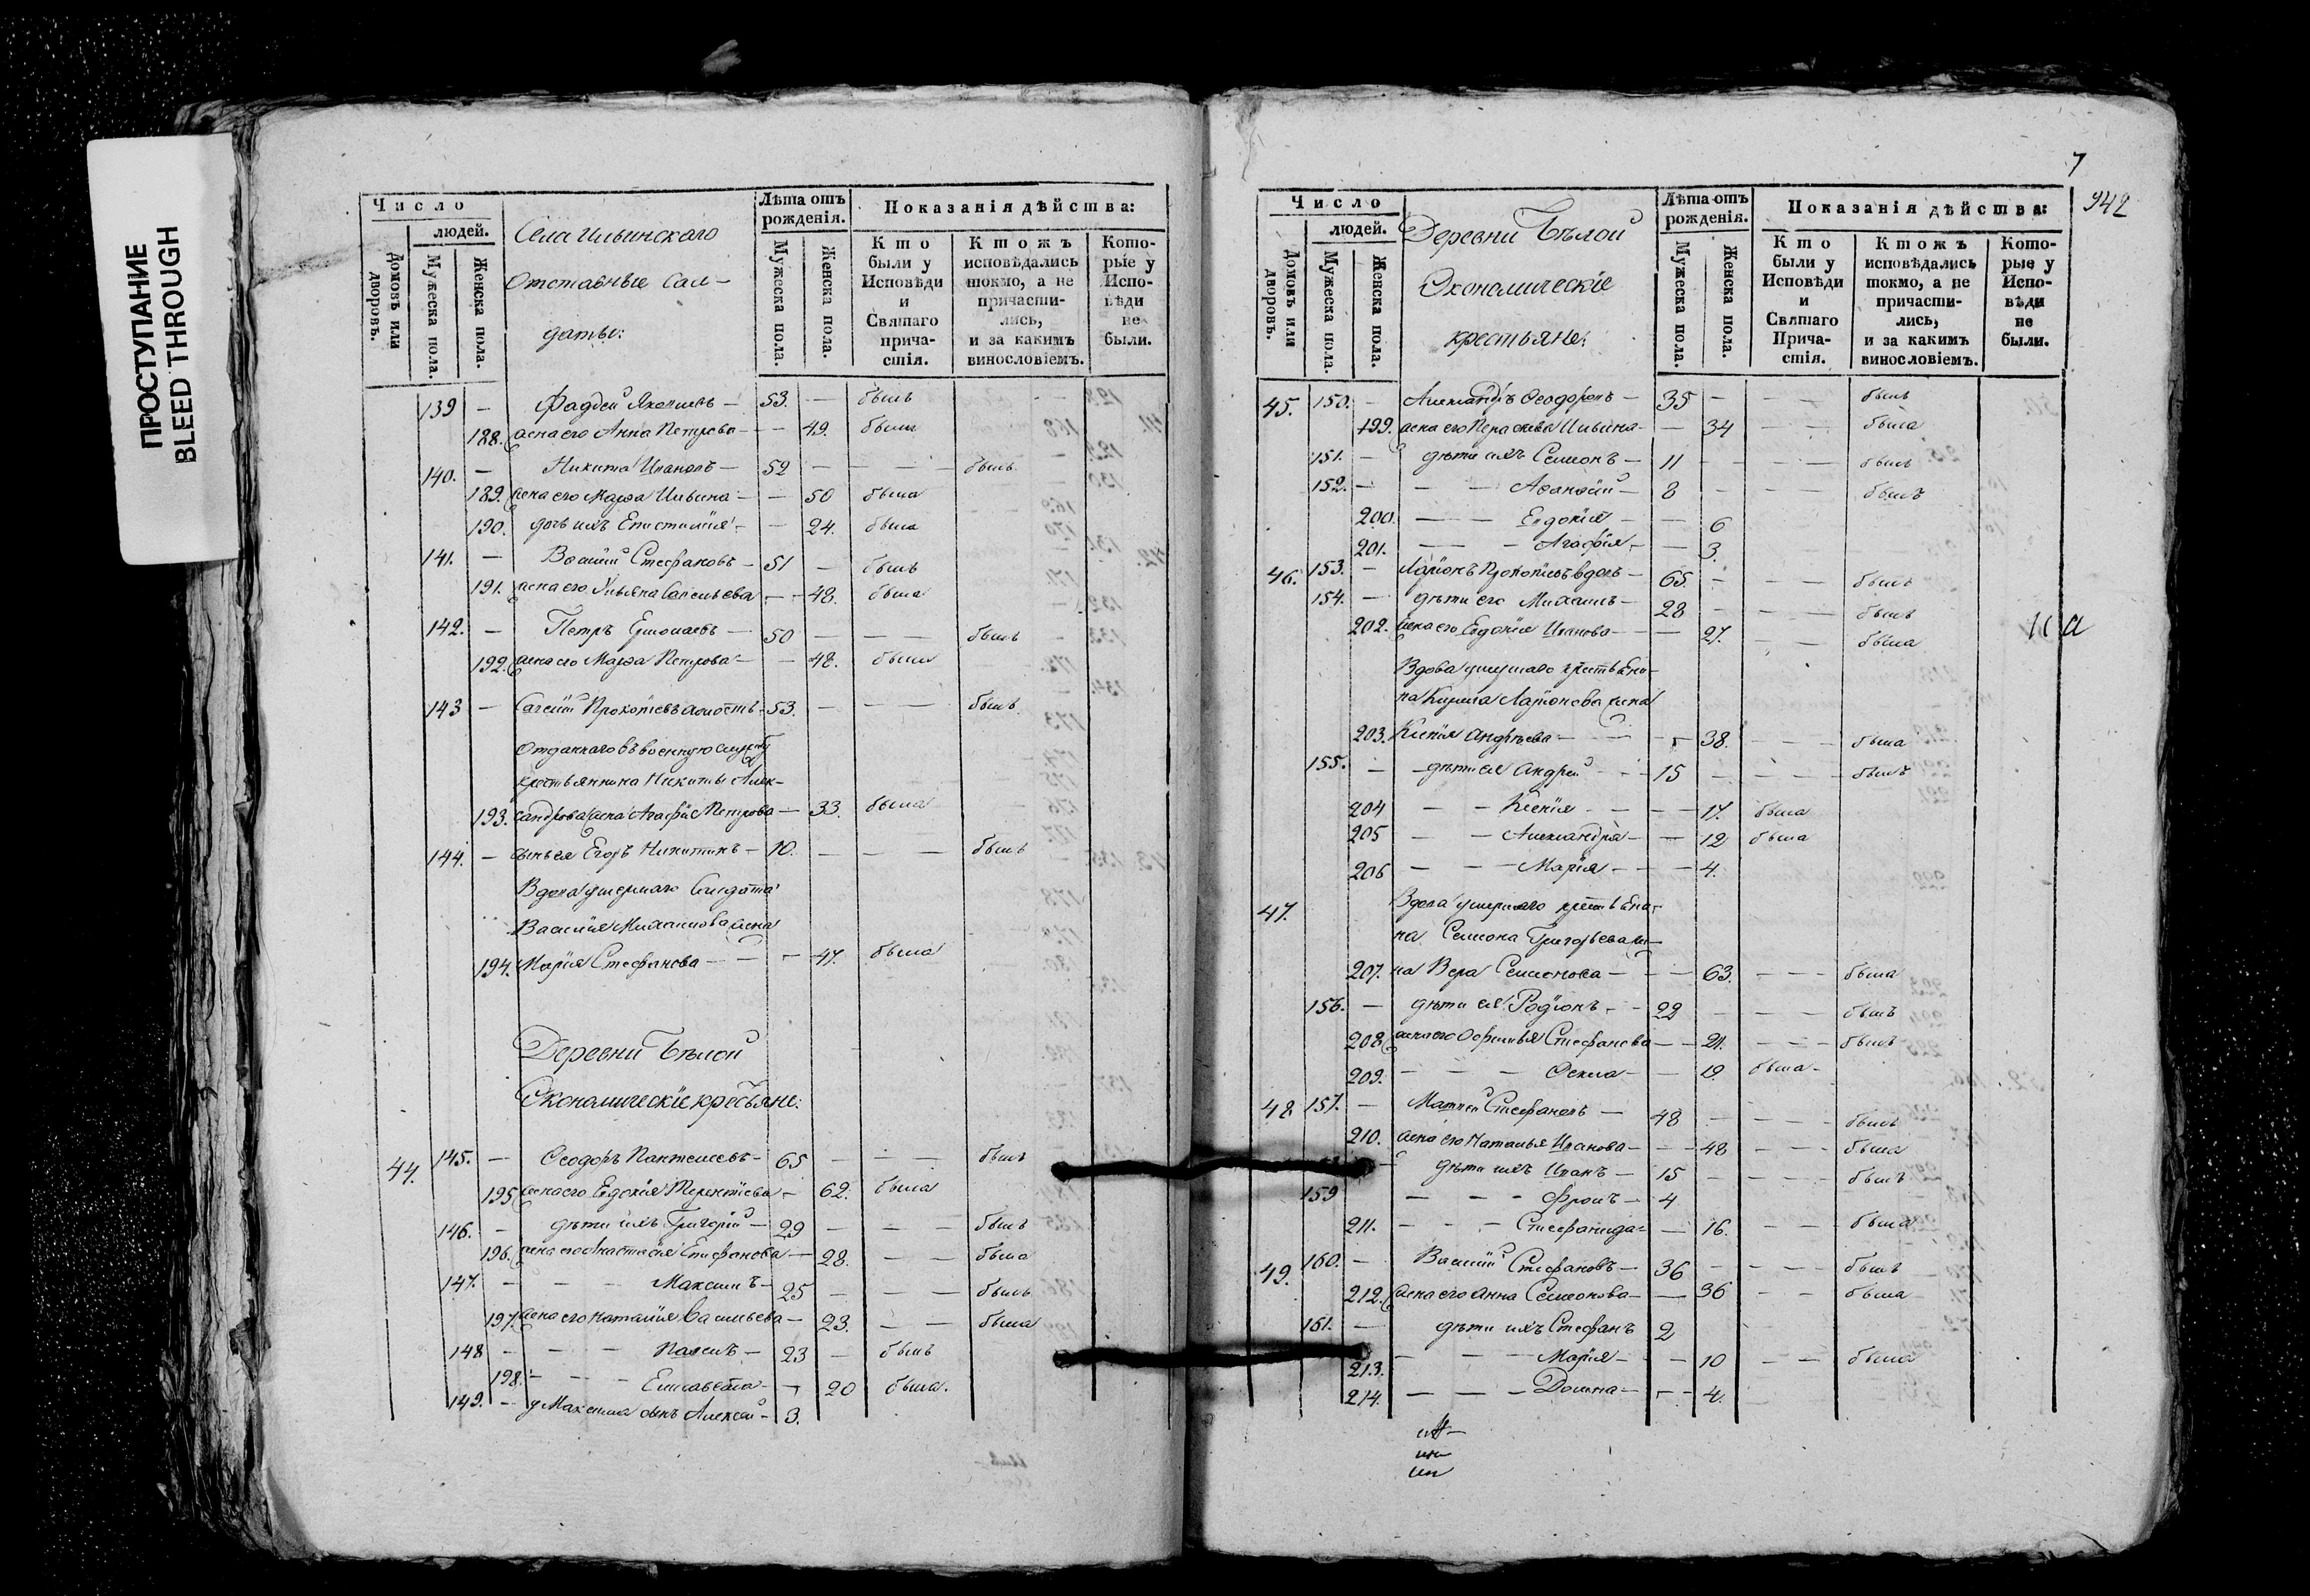 ПРОСТУПАНИЕ
BLEED THROUGH
Число
людей.
Домовъ или дворовъ.
Мужеска пола.
Женска пола.
Села Ильинскаго
Отставные сал-
даты:
Лѣта отъ рожденія.
Мужеска пола.
Женска пола.
Показанія дѣйства:
Кто были у Исповѣди и Святаго причастія.
Ктожъ исповѣдались токмо, а не причастились, и за какимъ винословіемъ.
Которые у Исповѣди не были.
139 — Фадей Яковлевъ — 53. — былъ
188. жена его Анна Петрова — — 49. была
140. — Никита Ивановъ — 52 — — — былъ
189. жена его Марѳа Ильина — — 50 была
190. дочь ихъ Епистимія — — 24. была
141. — Василій Стефановъ — 51 — былъ
191. жена его Ульяна Савельева — — 48. была
142. — Петръ Ермолаевъ — 50 — — — былъ
192. жена его Марѳа Петрова — — 48. была
143 — Савелій Прокопіевъ холостъ — 53. — — — былъ
Отданнаго въ военную службу
крестьянина Никиты Алек-
193. сандрова жена Агафія Петрова — 33. была
144. — сынъ ея Егоръ Никитинъ — 10. — — — былъ
Вдова умершаго Салдата
Василія Михаилова жена
194. Марія Стефанова — — — 47. была
Деревни Бѣлой
Экономическіе крестьяне:
44. 145. — Ѳеодоръ Пантелеевъ — 65 — — — былъ
195. жена его Евдокія Терентіева — 62. была
146. — дѣти ихъ Григорій — 29 — — — былъ
196. жена его Анастасія Епифанова — 28. — — была
147. — — — Максимъ — 25 — — — былъ
197. жена его Наталія Васильева — 23. — — была
148 — — — Павелъ — 23 — былъ
198. — — Елисавета — — 20 была.
149. — у Максима сынъ Алексѣй — 3.
7
942
Число
людей.
Домовъ или дворовъ.
Мужеска пола.
Женска пола.
Деревни Бѣлой
Экономическіе
крестьяне:
Лѣта отъ рожденія.
Мужеска пола.
Женска пола.
Показанія дѣйства:
Кто были у Исповѣди и Святаго Причастія.
Ктожъ исповѣдались токмо, а не причастились, и за какимъ винословіемъ.
Которые у Исповѣди не были.
45. 150. — Александръ Ѳеодоровъ — 35 — — — былъ
199. жена его Параскева Ильина — — 34 — — была
151. — дѣти ихъ Семіонъ — 11 — — — былъ
152. — — — Аѳанасій — 8 — — — былъ
200. — — Евдокія — — 6
201. — — — Агафія — — 3.
46. 153. — Ларіонъ Прокопіевъ вдовъ — 65. — — — былъ
154. — дѣти его Михаилъ — 28 — — — былъ
202. жена его Евдокія Иванова — — 27. — — была
Вдова умершаго крестьяни-
на Кирила Ларіонова жена
203. Ксенія Андреева — — — 38. — — была
155. — дѣти ея Андрей — — 15 — — — былъ
204 — — Ксенія — — — 17. была
205 — — Александра — — 12 была
206 — — — Марія — — — 4.
47. Вдова умершаго крестьяни-
на Семіона Григорьева же-
207. на Вера Семионова — — — 63. — — была
156. — дѣти ея Родіонъ — — 22 — — — былъ
208. жена его Стефанова — — 21. — — — былъ
209. — — — Ѳекла — — 19. была —
48. 157. — Матвей Стефановъ — 48 — — — былъ
210. жена его Наталья Иванова — — 48 — — была
— дѣти ихъ Иванъ — 15 — — — былъ
159 — — — Фролъ — 4
211. — — — Стефанида — — 16. — — была
49. 160. — Василій Стефановъ — 36 — — — былъ
212. жена его Анна Семионова — — 36 — — была
161. — дѣти ихъ Стефанъ 2
213. — — — Марія — — 10 — — была
214. — — — Домна — — — 4.